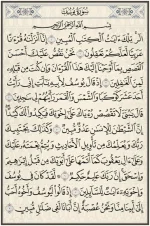 سُورَةُ يُوسُفَ
بِسْمِ اللَّهِ الرَّحْمَٰنِ الرَّحِيمِ
الٓر تِلْكَ ءَايَٰتُ الْكِتَٰبِ الْمُبِينِ ۝١ إِنَّآ أَنزَلْنَٰهُ قُرْءَٰنًا
عَرَبِيًّا لَّعَلَّكُمْ تَعْقِلُونَ ۝٢ نَحْنُ نَقُصُّ عَلَيْكَ أَحْسَنَ
الْقَصَصِ بِمَآ أَوْحَيْنَآ إِلَيْكَ هَٰذَا الْقُرْءَانَ وَإِن كُنتَ
مِن قَبْلِهِۦ لَمِنَ الْغَٰفِلِينَ ۝٣ إِذْ قَالَ يُوسُفُ لِأَبِيهِ يَٰٓأَبَتِ إِنِّى رَأَيْتُ
أَحَدَ عَشَرَ كَوْكَبًا وَالشَّمْسَ وَالْقَمَرَ رَأَيْتُهُمْ لِى سَٰجِدِينَ ۝٤
قَالَ يَٰبُنَىَّ لَا تَقْصُصْ رُءْيَاكَ عَلَىٰٓ إِخْوَتِكَ فَيَكِيدُوا۟ لَكَ كَيْدًا
إِنَّ الشَّيْطَٰنَ لِلْإِنسَٰنِ عَدُوٌّ مُّبِينٌ ۝٥ وَكَذَٰلِكَ يَجْتَبِيكَ
رَبُّكَ وَيُعَلِّمُكَ مِن تَأْوِيلِ الْأَحَادِيثِ وَيُتِمُّ نِعْمَتَهُۥ عَلَيْكَ
وَعَلَىٰٓ ءَالِ يَعْقُوبَ كَمَآ أَتَمَّهَا عَلَىٰٓ أَبَوَيْكَ مِن قَبْلُ إِبْرَٰهِيمَ
وَإِسْحَٰقَ إِنَّ رَبَّكَ عَلِيمٌ حَكِيمٌ ۝٦ لَّقَدْ كَانَ فِى يُوسُفَ
وَإِخْوَتِهِۦٓ ءَايَٰتٌ لِّلسَّآئِلِينَ ۝٧ إِذْ قَالُوا۟ لَيُوسُفُ وَأَخُوهُ أَحَبُّ
إِلَىٰٓ أَبِينَا مِنَّا وَنَحْنُ عُصْبَةٌ إِنَّ أَبَانَا لَفِى ضَلَٰلٍ مُّبِينٍ ۝٨